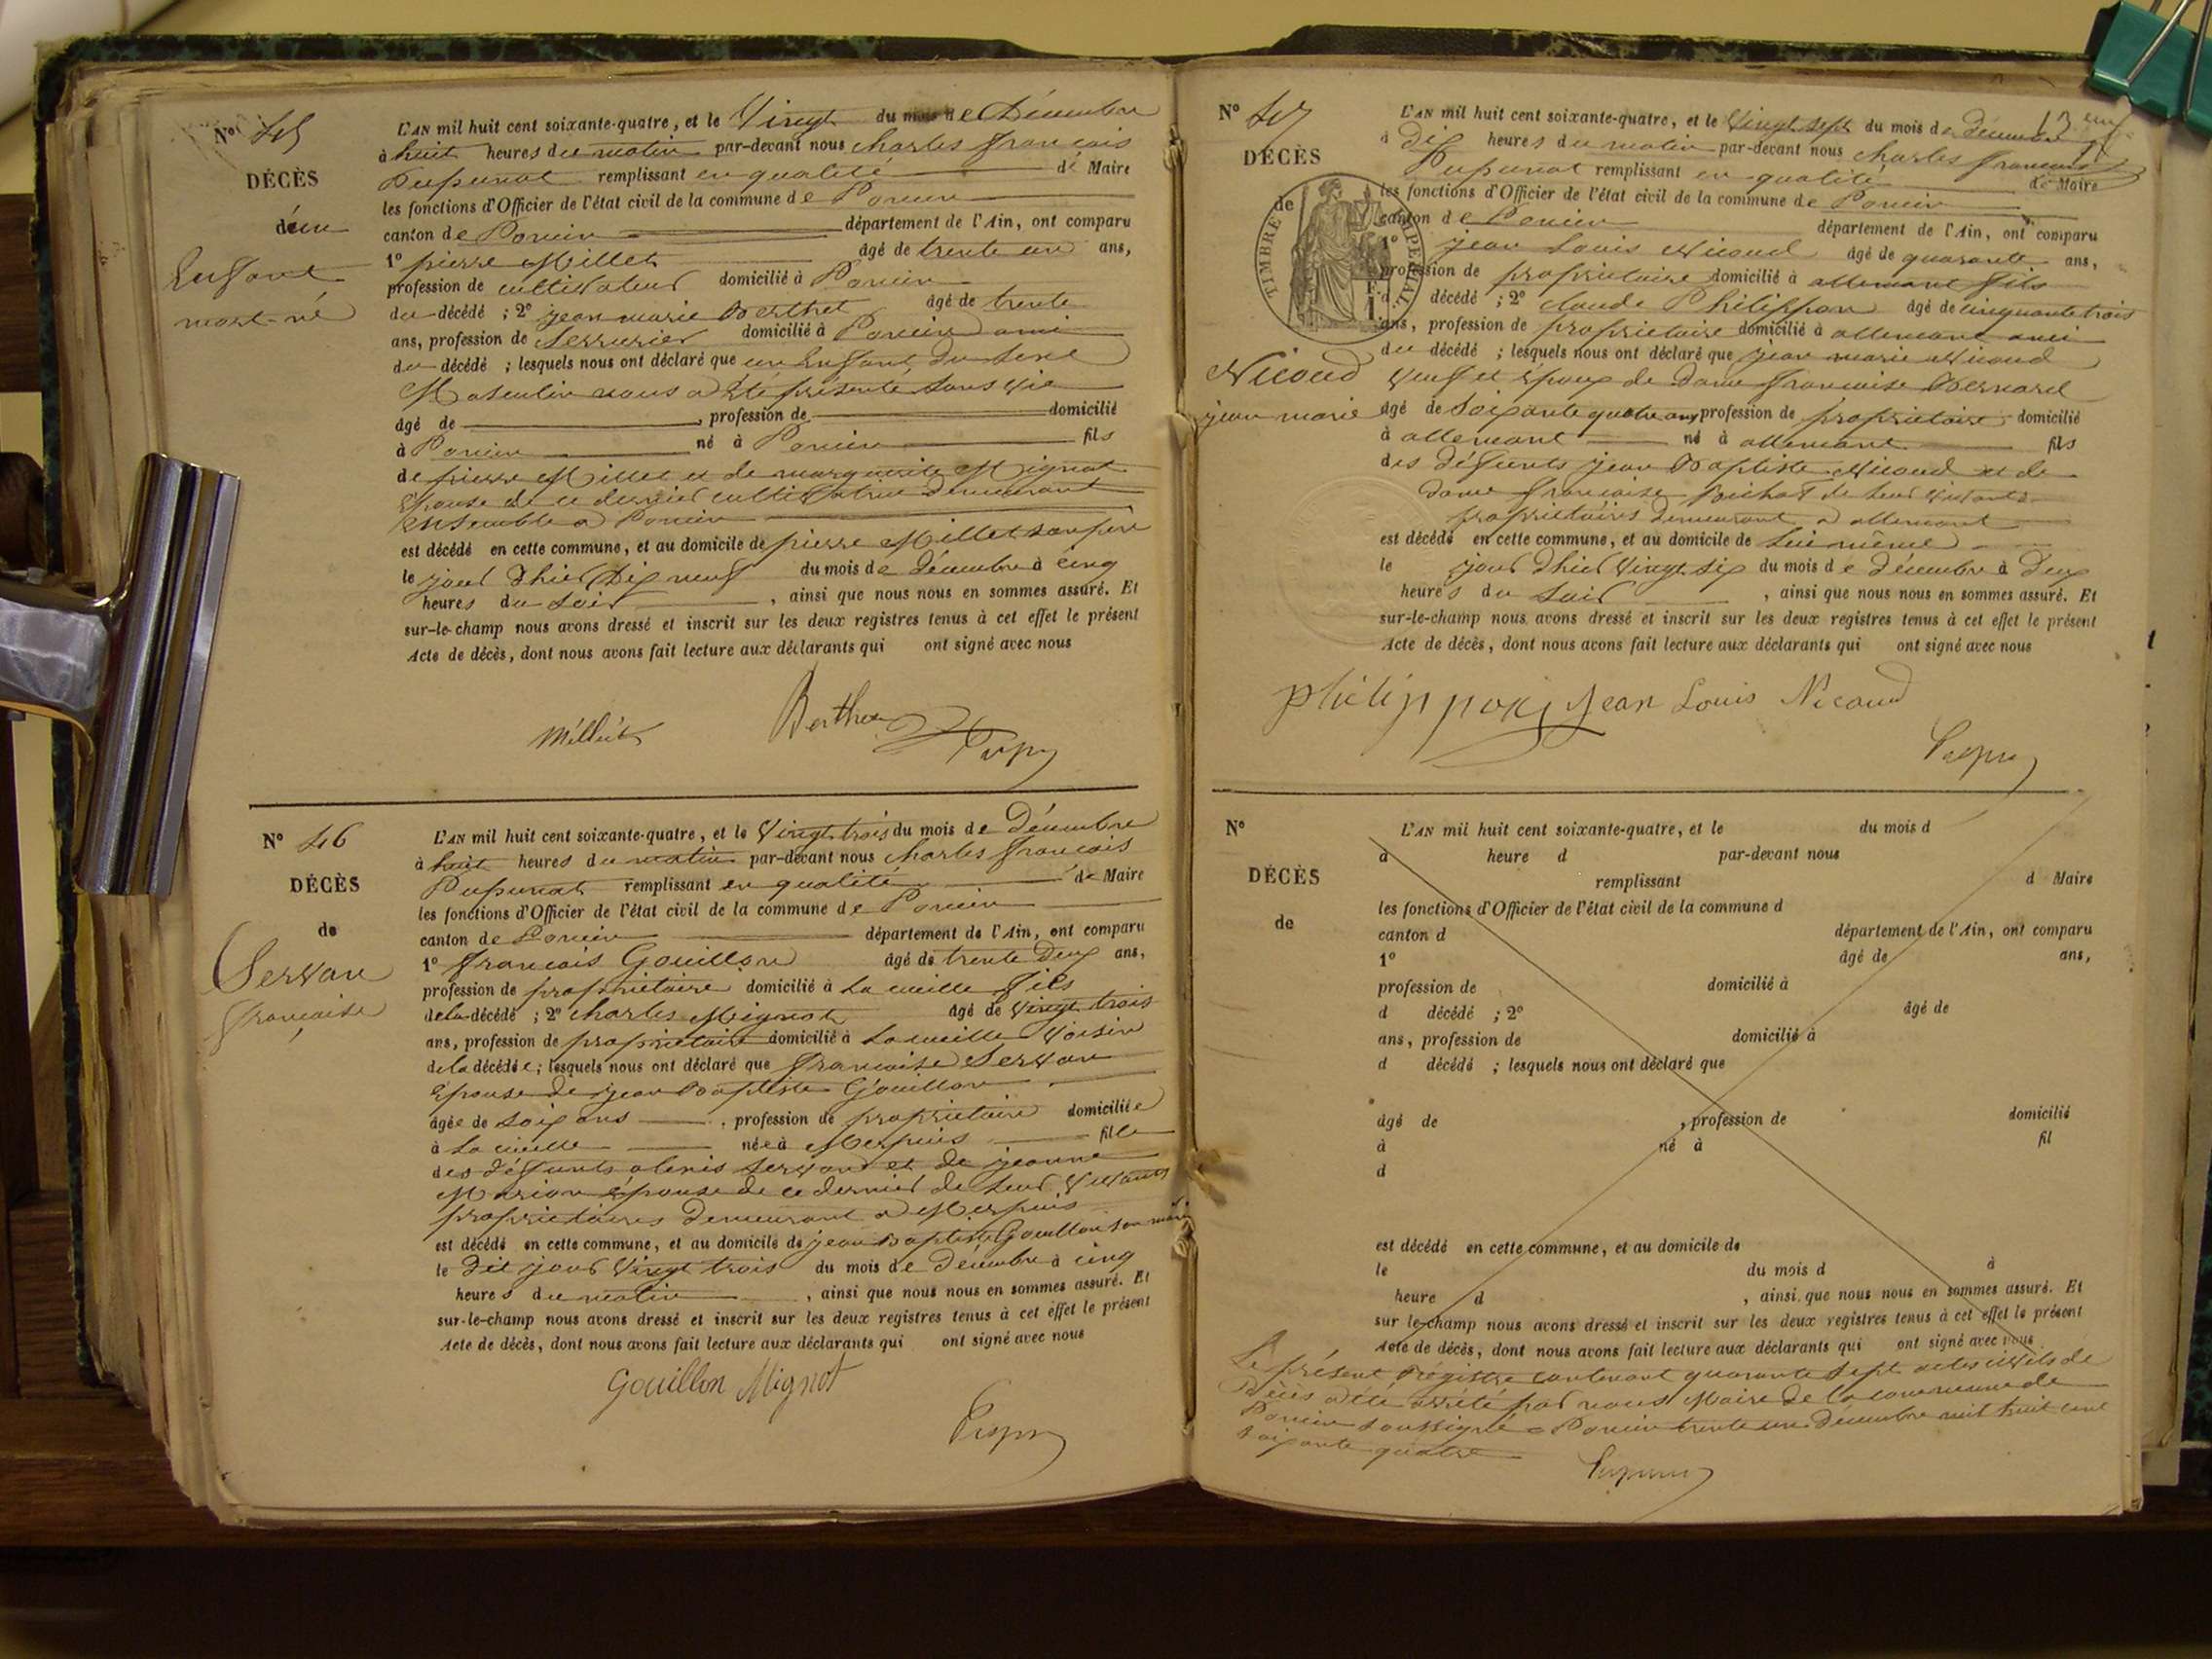 N° 45
DÉCÈS
d'un
Enfant
mort-né
L'AN mil huit cent soixante-quatre, et le Vingt du mois de Décembre
à huit heures du matin par-devant nous charles françois
Pupunat remplissant en qualité de Maire
les fonctions d'Officier de l'état civil de la commune de Poncin
canton de Poncin département de l'Ain, ont comparu
1° pierre Millet âgé de trente un ans,
profession de cultivateur domicilié à Poncin
du décédé ; 2° jean marie Berthet âgé de trente
ans, profession de Serrurier domicilié à Poncin ami
du décédé ; lesquels nous ont déclaré que un Enfant du sexe
Masculin nous a Eté présenté sans vie
âgé de , profession de domicilié
à Poncin né à Poncin fils
de pierre Millet et de marguerite Mignot
Epouse de ce dernier cultivatrice demeurant
Ensemble a Poncin
est décédé en cette commune, et au domicile de pierre Millet son père
le jour d'hier Dix neuf du mois de décembre à cinq
heures du soir , ainsi que nous nous en sommes assuré. Et
sur-le-champ nous avons dressé et inscrit sur les deux registres tenus à cet effet le présent
Acte de décès, dont nous avons fait lecture aux déclarants qui ont signé avec nous
Berthet
N° 46
DÉCÈS
de
Servan
françoise
L'AN mil huit cent soixante-quatre, et le Vingt trois du mois de Décembre
à huit heures du matin par-devant nous charles françois
Pupunat remplissant en qualité de Maire
les fonctions d'Officier de l'état civil de la commune de Poncin
canton de Poncin département de l'Ain, ont comparu
1° françois Gouillon âgé de trente Deux ans,
profession de propriétaire domicilié à La cueille fils
de la décédé ; 2° charles Mignot âgé de Vingt trois
ans, profession de propriétaire domicilié à La cueille Voisin
de la décédée ; lesquels nous ont déclaré que françoise Servan
Epouse de jean Baptiste Gouillon
âgée de soix ans , profession de propriétaire domiciliée
à La cueille née à Merpuis fille
des défunts alexis Servan et de jeanne
Marion épouse de ce dernier de leur vivants
propriétaires Demeurant a Merpuis
est décédé en cette commune, et au domicile de jean Baptiste Gouillon son mari
le Dit jour Vingt trois du mois de Décembre à cinq
heures du matin , ainsi que nous nous en sommes assuré. Et
sur-le-champ nous avons dressé et inscrit sur les deux registres tenus à cet effet le présent
Acte de décès, dont nous avons fait lecture aux déclarants qui ont signé avec nous
Gouillon Mignot
N° 47
DÉCÈS
de
TIMBRE IMPERIAL
Nicoud
jean marie
L'AN mil huit cent soixante-quatre, et le Vingt sept du mois de décembre
à Dix heures du matin par-devant nous charles françois
Pupunat remplissant en qualité de Maire
les fonctions d'Officier de l'état civil de la commune de Poncin
canton de Poncin département de l'Ain, ont comparu
1° jean Louis Nicoud âgé de quarante ans,
profession de propriétaire domicilié à allement fils
du décédé ; 2° claude Philippon âgé de cinquante trois
ans, profession de propriétaire domicilié à allement ami
du décédé ; lesquels nous ont déclaré que jean marie Nicoud
Veuf et époux de Dame françoise Bernard
âgé de Soixante quatre ans, profession de propriétaire domicilié
à allement né à allement fils
des défunts jean Baptiste Nicoud et de
dame françoise de leur vivants
propriétaires demeurant a allement
est décédé en cette commune, et au domicile de lui même
le jour d'hier Vingt six du mois de décembre à Deux
heures du soir , ainsi que nous nous en sommes assuré. Et
sur-le-champ nous avons dressé et inscrit sur les deux registres tenus à cet effet le présent
Acte de décès, dont nous avons fait lecture aux déclarants qui ont signé avec nous
philippon Jean Louis Nicoud
N°
DÉCÈS
de
L'AN mil huit cent soixante-quatre, et le du mois d
à heure d par-devant nous
remplissant d Maire
les fonctions d'Officier de l'état civil de la commune d
canton d département de l'Ain, ont comparu
1° âgé de ans,
profession de domicilié à
d décédé ; 2° âgé de
ans, profession de domicilié à
d décédé ; lesquels nous ont déclaré que
âgé de , profession de domicilié
à né à fil
d
est décédé en cette commune, et au domicile de
le du mois d à
heure d , ainsi que nous nous en sommes assuré. Et
sur le-champ nous avons dressé et inscrit sur les deux registres tenus à cet effet le présent
Acte de décès, dont nous avons fait lecture aux déclarants qui ont signé avec nous
Le présent Régistre contenant quarante sept actes civils de
Décès a été arrêté par nous Maire de la commune de
Poncin soussigné a Poncin trente un Décembre mil huit cent
soixante quatre